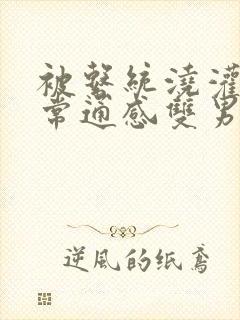 被繫統澆灌
常適感雙男
逆風的纸鳶